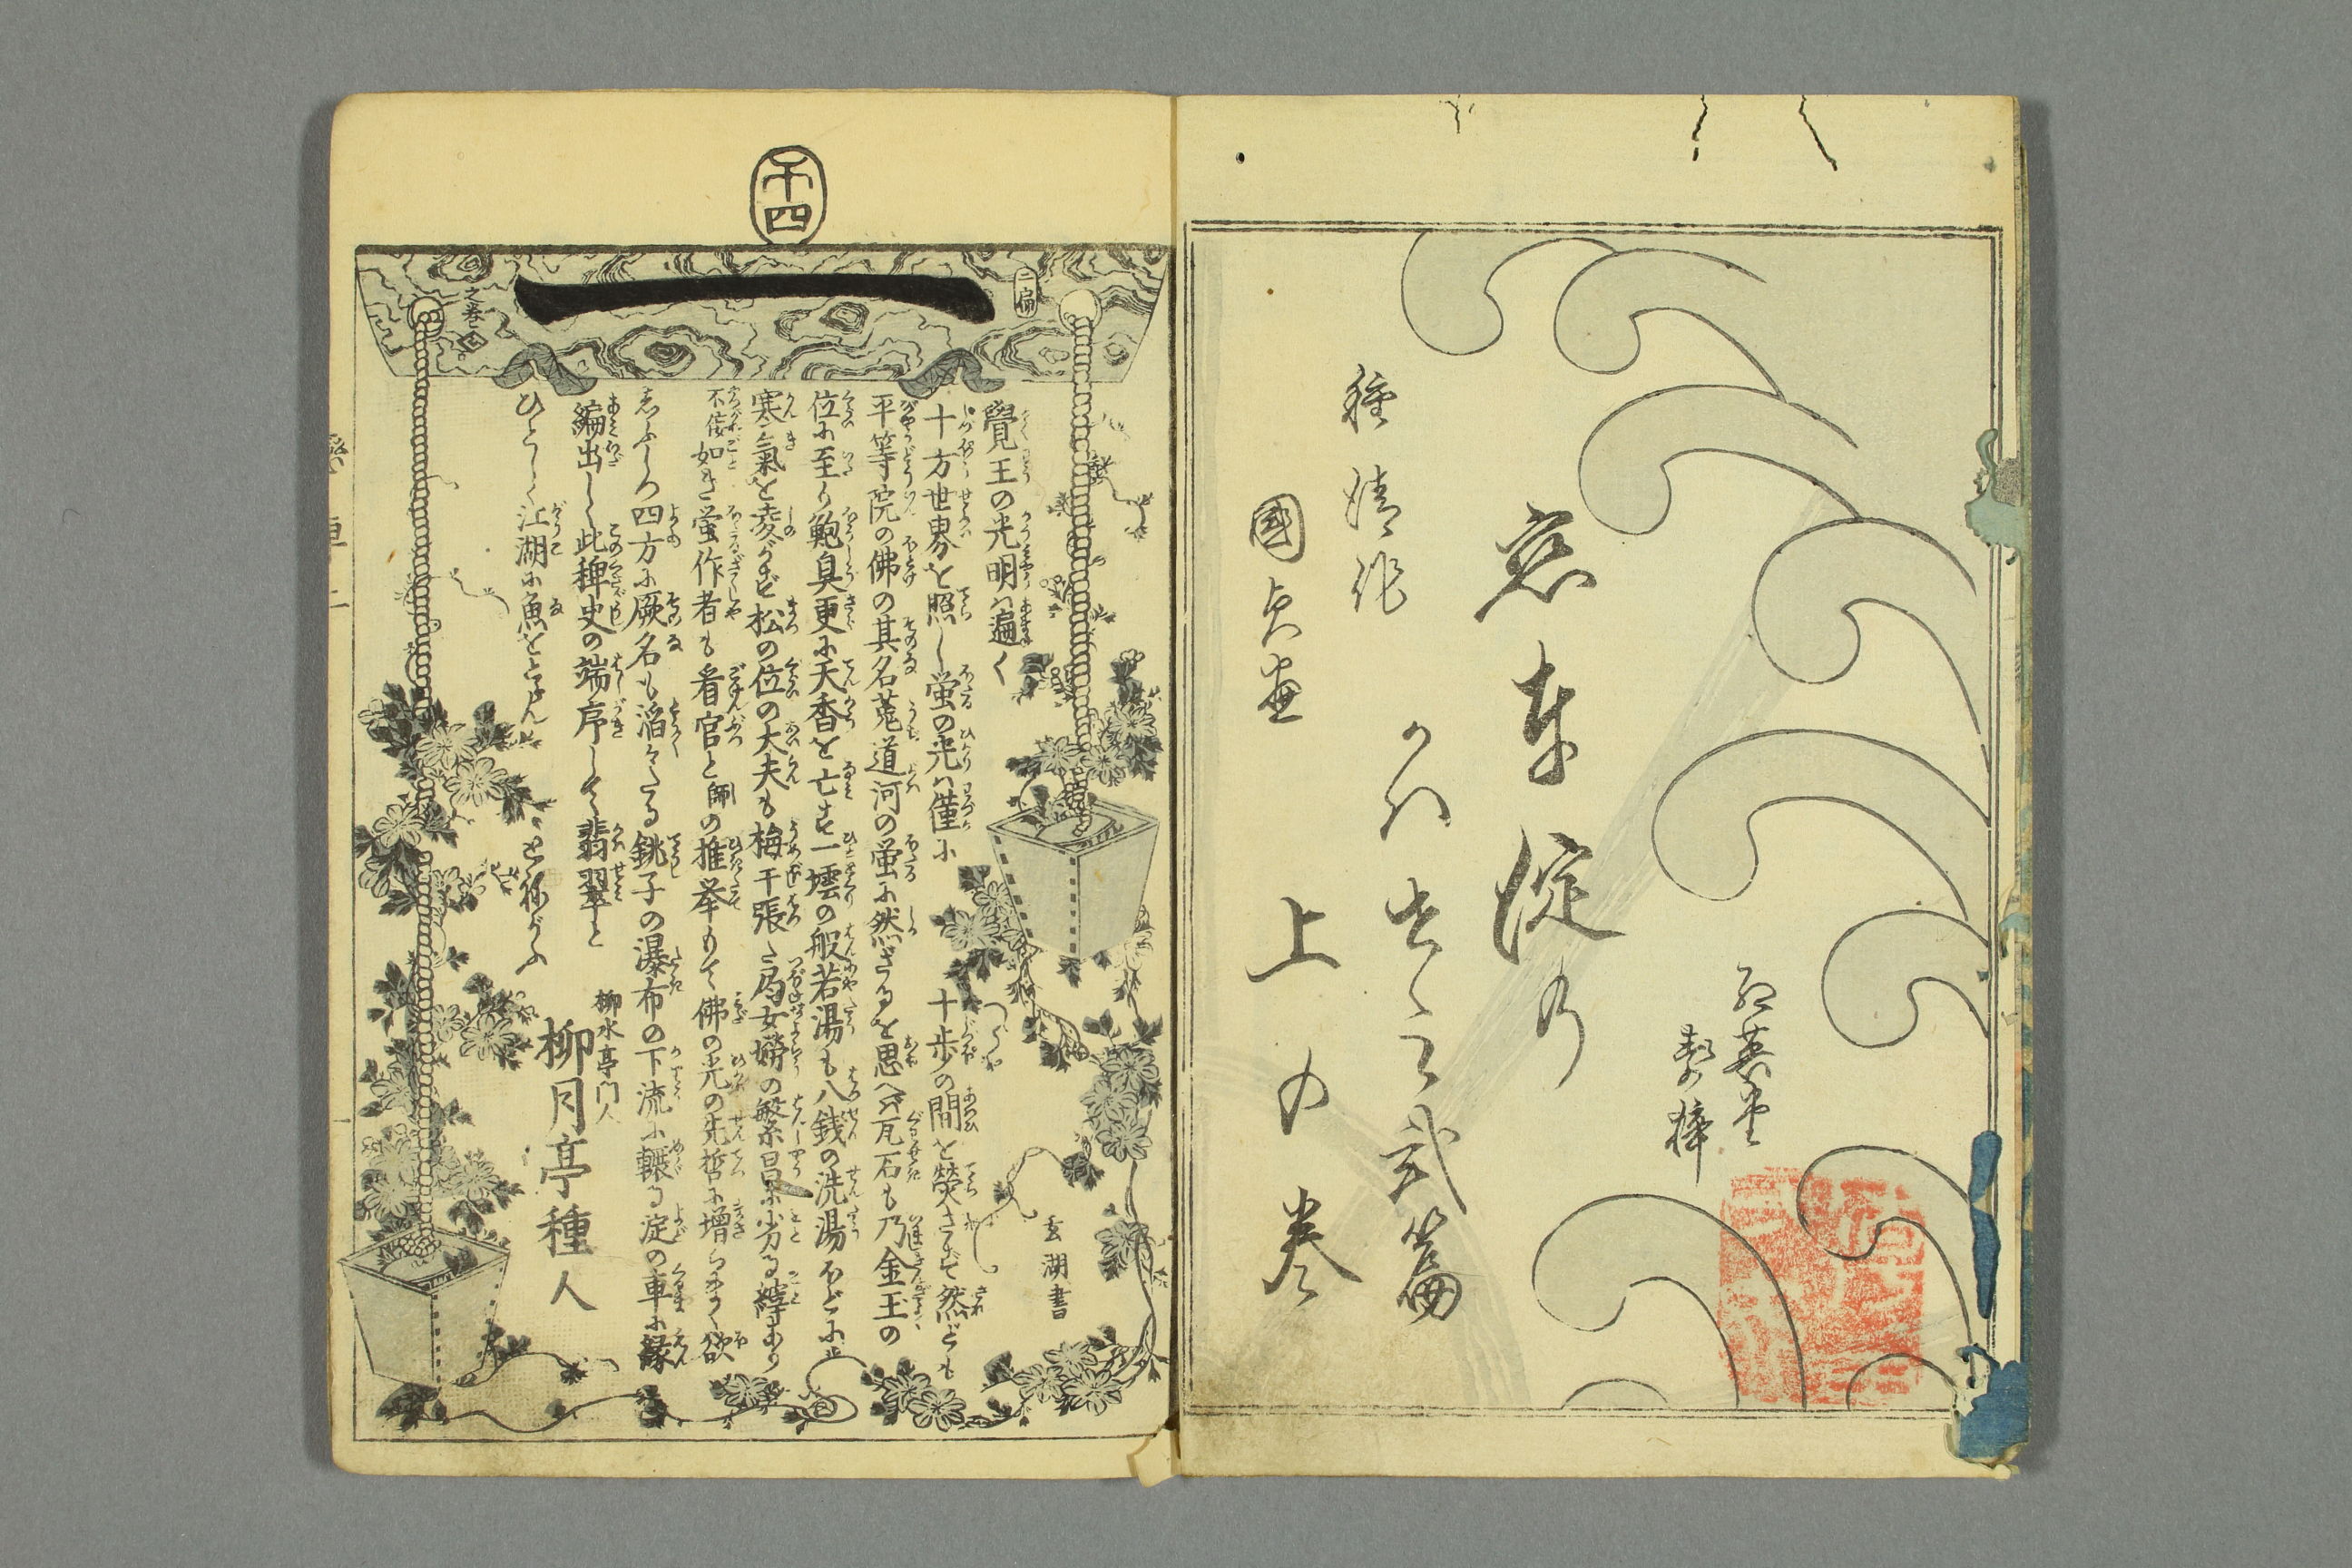 紅英堂
製梓
恋車淀乃
かは世之弐篇
種清作
國貞画
上の巻
千四
二扁
之巻上
覺王の光明ハ遍く
十方世界を照し螢の光ハ僅に
十歩の間を熒さず然ども
平等院の佛の其名菟道河の螢に然ざるを思へバ瓦石も乃金玉の
位に至り鮑臭更に天香を亡す一壜の般若湯も八銭の洗湯ほどに
寒氣を凌がせど松の位の大夫も梅干張た局女嫽の繁昌に劣る縡あり
不佞如き螢作者も看官と師の推挙もて佛の光の先哲に増らまく欲
思ふから四方に厥名も滔々たる銚子の瀑布の下流に輾る淀の車に縁
編出し此稗史の端序して翡翠と
ひとしく江湖に魚をとらん
とねがふ
柳水亭门人
柳月亭種人
玄湖書